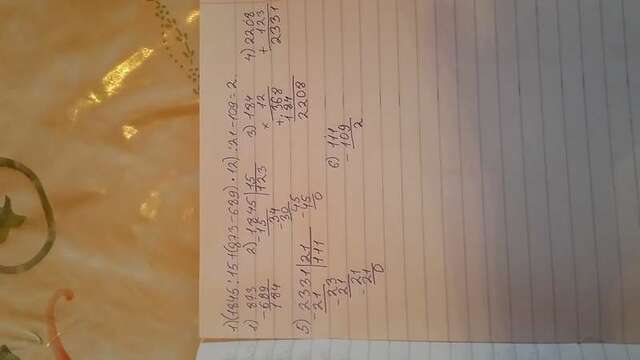 1) (1845 : 15 + (873 - 689) · 12) : 21 - 109 = 2
1) 873 - 689 184
2) 1845 | 15 123 - 15 34 - 30 45 - 45 0
3) 184 × 12 + 368 184 2208
4) 2208 + 123 2331
5) 2331 | 21 111 - 21 23 - 21 21 - 21 0
6) 111 - 109 2